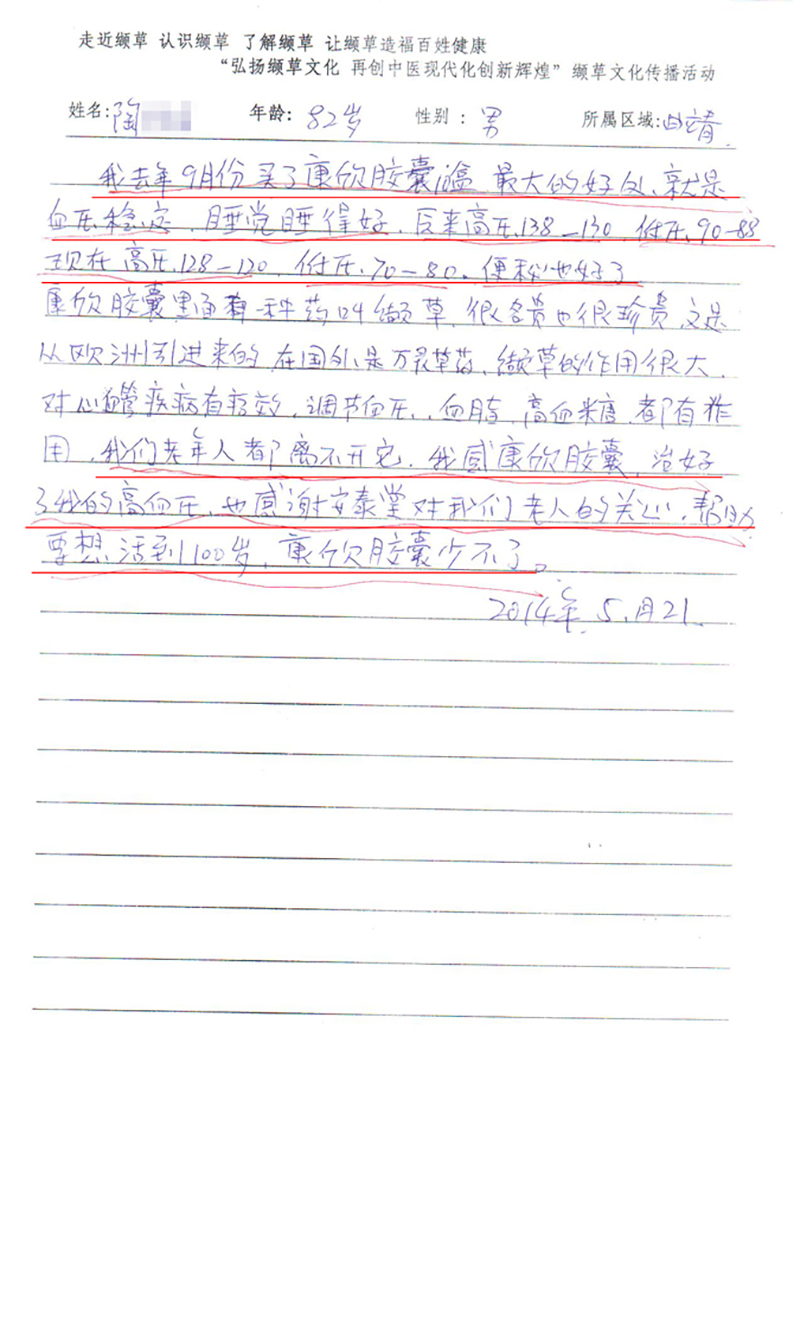 走近缬草 认识缬草 了解缬草 让缬草造福百姓健康
“弘扬缬草文化 再创中医现代化创新辉煌” 缬草文化传播活动
姓名:陶 年龄: 82岁 性别 : 男 所属区域:曲靖
我去年9月份买了康欣胶囊 盒 最大的好处、就是
血压稳定，睡觉睡得好，后来高压、138—130，低压、90—88
现在高压、128—120，低压、70—80。便秘也好了
康欣胶囊里面有一种药叫缬草，很名贵也很珍贵，这是
从欧洲引进来的，在国外是万灵草药，缬草的作用很大，
对心血管疾病有疗效，调节血压、血脂，高血糖，都有作
用，我们老年人都离不开它，我感康欣胶囊，治好
了我的高血压，也感谢安泰堂对我们老人的关心，帮助
要想活到100岁，康欣胶囊少不了。
2014年5.月21.